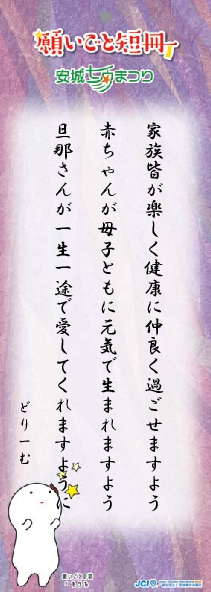 願いごと短冊
安城七夕まつり
家族皆が楽しく健康に仲良く過ごせますよう
赤ちゃんが母子ともに元気で生まれますよう
旦那さんが一生一途で愛してくれますように
どりーむ
願いごと短冊
JCI